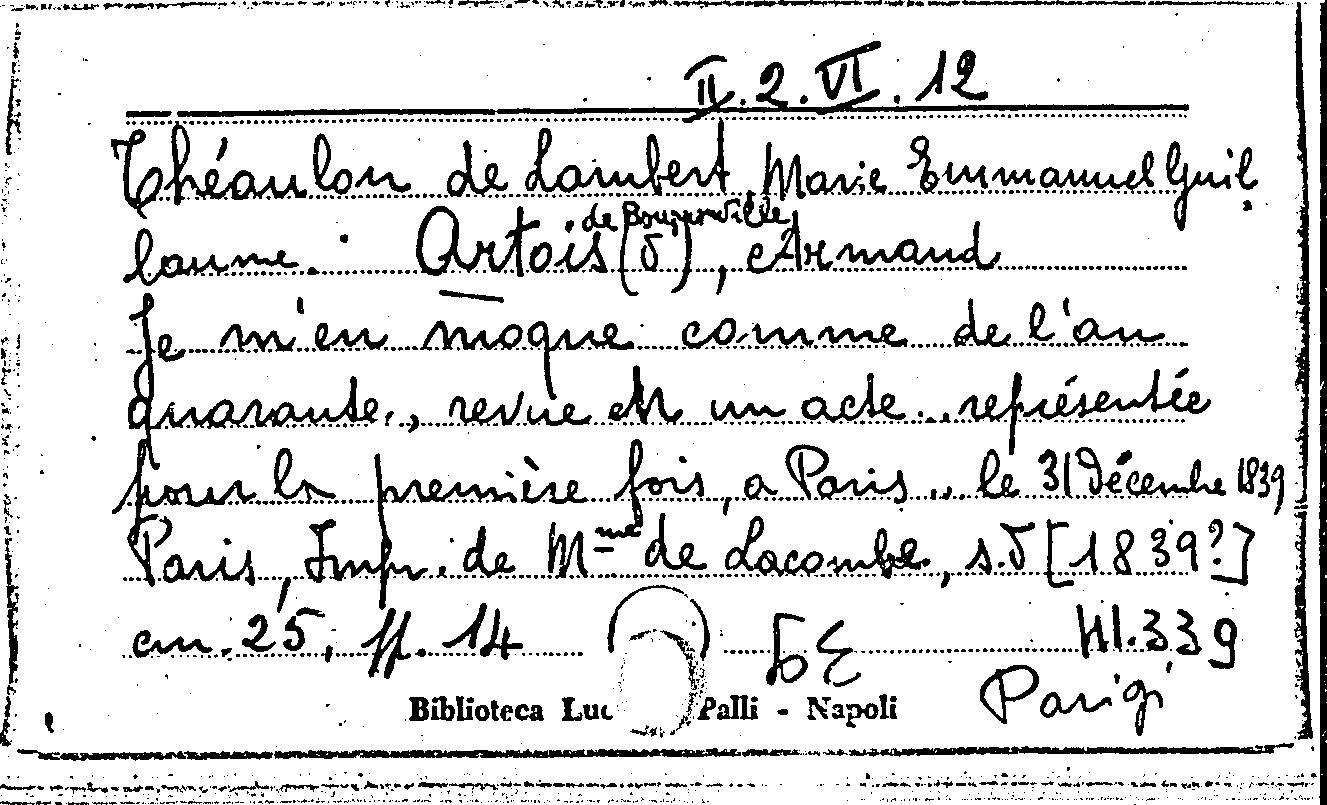 II.2.VI.12
Théaulon de Lambert, Marie Emmanuel Guil
laume. Artois (d'), Armand
Je m'en moque comme de l'an
quarante., revue en un acte... représentée
pour la première fois, a Paris.. le 31 Décembre 1839
Paris, Impr. de Mme de Lacombe, s.d [1839?]
cm. 25, ff. 14
HI.339
Parigi
Biblioteca Luc Palli - Napoli